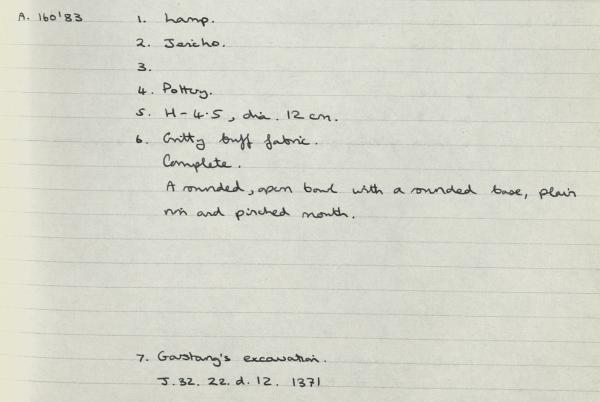 A. 160'83 1. Lamp.
2. Jericho.
3.
4. Pottery.
5. H - 4.5, dia. 12 cm.
6. Gritty buff fabric.
Complete.
A rounded, open bowl with a rounded base, plain
rim and pinched mouth.
7. Garstang's excavation.
J. 32. 22. d. 12. 1371